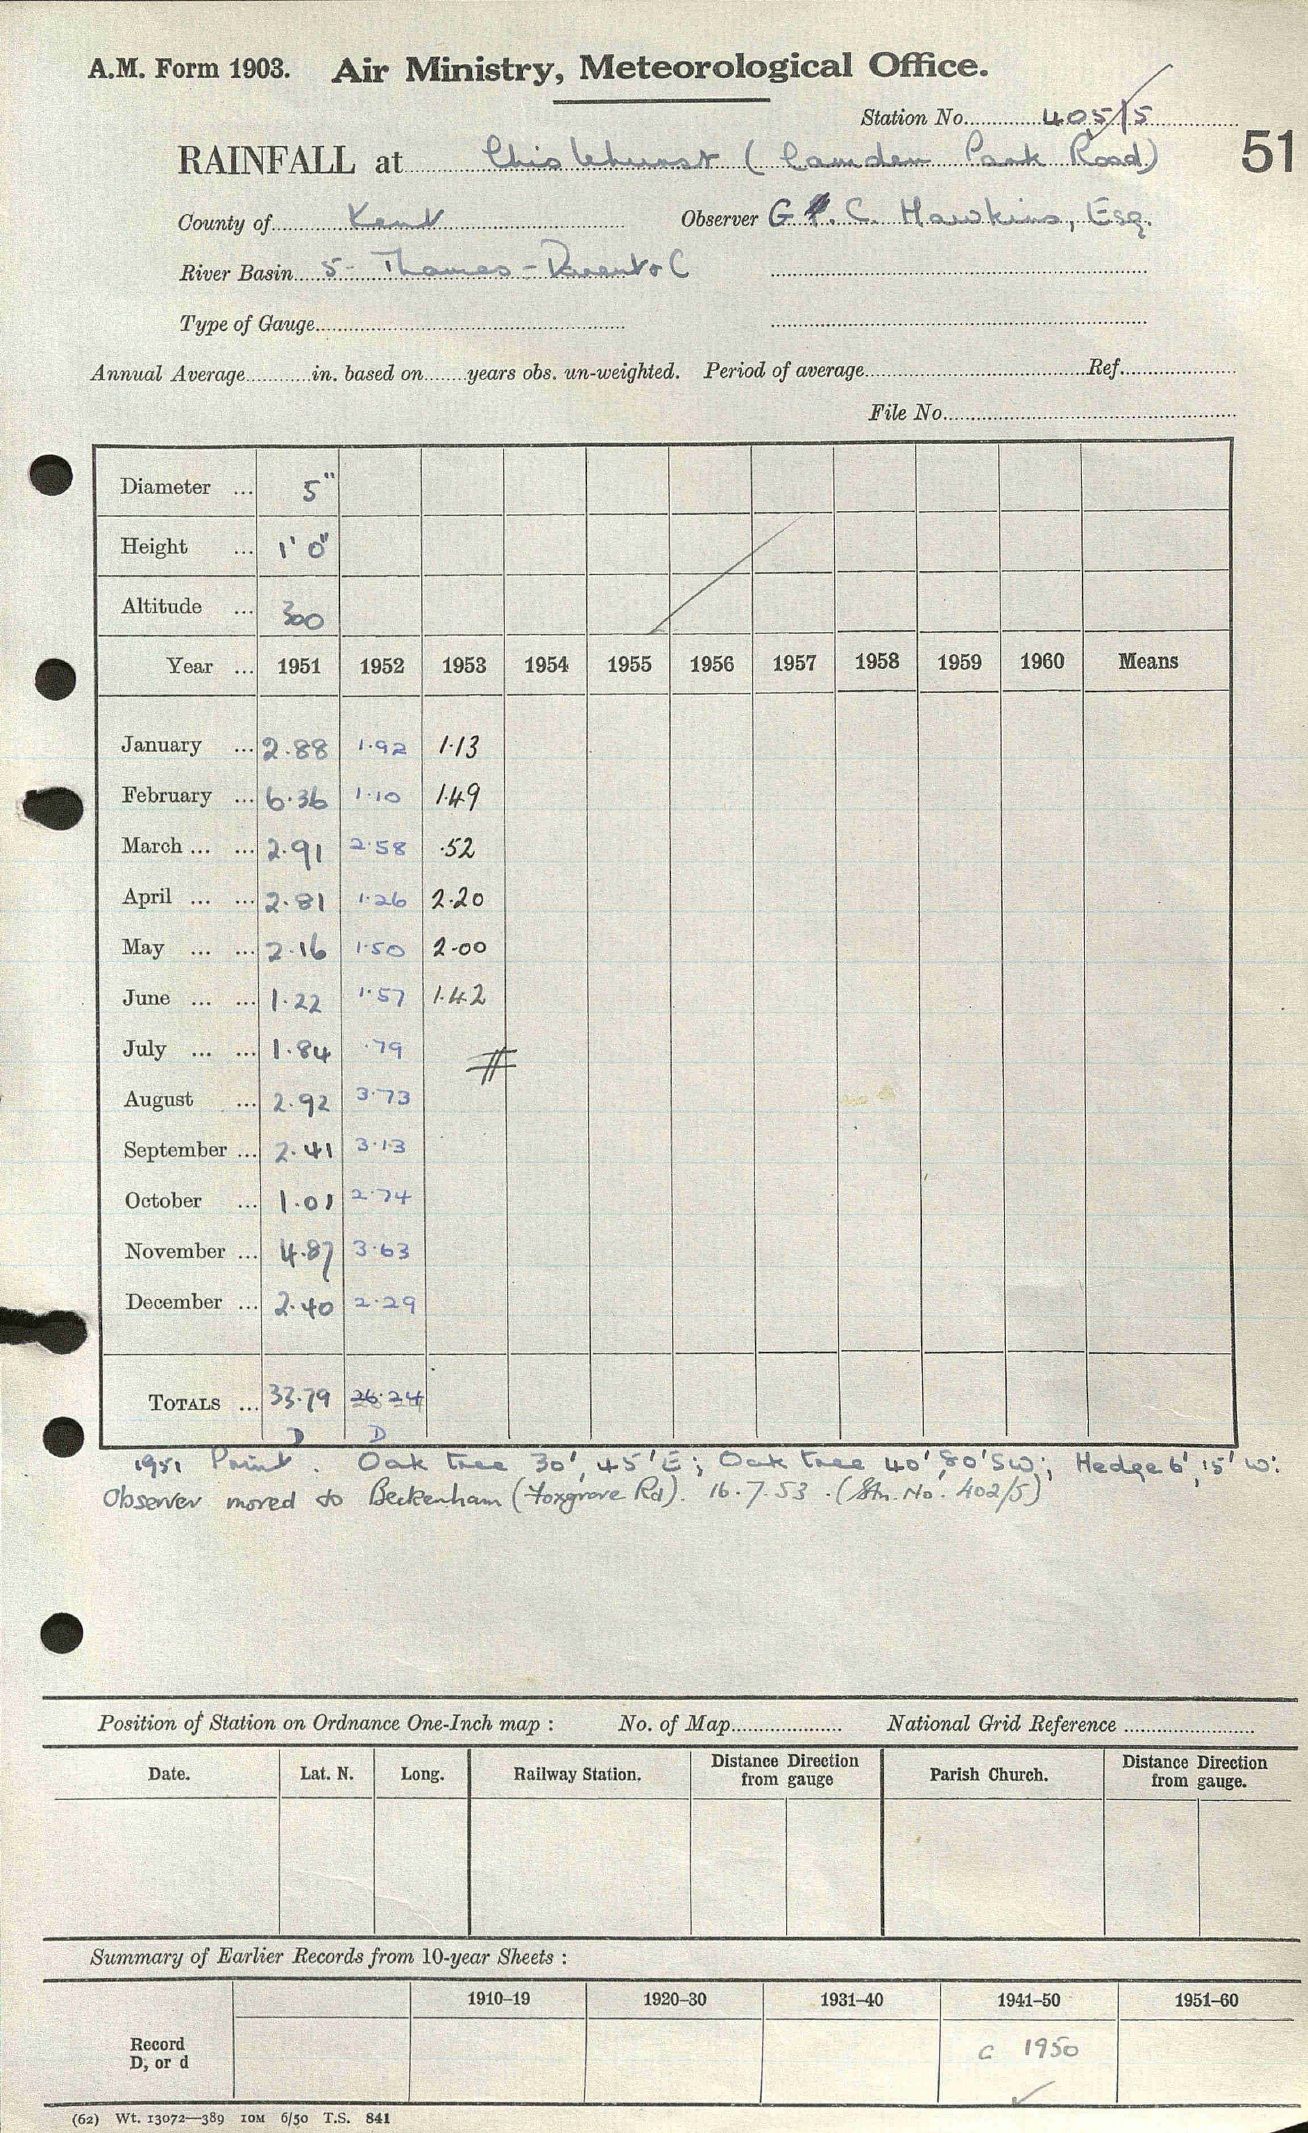 A.M. Form 1903. Air Ministry, Meteorological Office.
Station No. 405/5
51
RAINFALL at Chislehurst (Camden Park Road)
County of Kent Observer G. C. Hawkins, Esq.
River Basin 5 - Thames - Darent & C
Type of Gauge
Annual Average in. based on years obs. un-weighted. Period of average Ref.
File No.
Diameter ... 5"
Height ... 1' 0"
Altitude ... 300
Year ... 1951 1952 1953 1954 1955 1956 1957 1958 1959 1960 Means
January ... 2.88 1.92 1.13
February ... 6.36 1.10 1.49
March ... ... 2.91 2.58 .52
April ... ... 2.81 1.26 2.20
May ... ... 2.16 1.50 2.00
June ... ... 1.22 1.57 1.42
July ... ... 1.84 .79
August ... 2.92 3.73
September ... 2.41 3.13
October ... 1.01 2.74
November ... 4.87 3.63
December ... 2.40 2.29
TOTALS ... 33.79 26.24
D D
1951 Print. Oak tree 30', 45' E; Oak tree 40', 80' SW; Hedge 6', 15' W:
Observer moved to Beckenham (Foxgrove Rd). 16.7.53. (Stn. No. 402/5)
Position of Station on Ordnance One-Inch map : No. of Map National Grid Reference
Date. Lat. N. Long. Railway Station. Distance Direction from gauge Parish Church. Distance Direction from gauge.
Summary of Earlier Records from 10-year Sheets :
1910–19 1920–30 1931–40 1941–50 1951–60
Record
D, or d
c 1950
(62) Wt. 13072—389 10M 6/50 T.S. 841